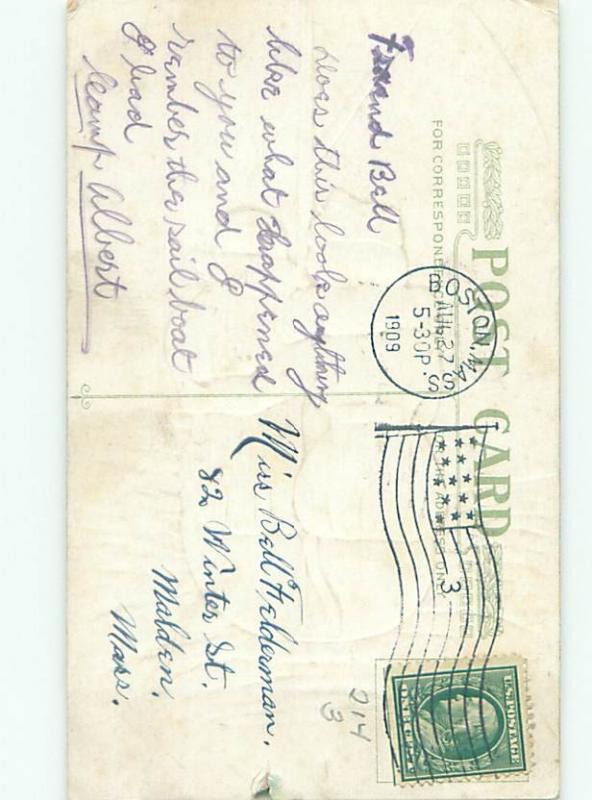 POST CARD
FOR CORRESPONDENCE
FOR THE ADDRESS ONLY
BOSTON, MASS.
AUG 27
5-30P.
1909
3
U.S. POSTAGE
ONE CENT
Friend Bell
does this look anything
like what happened
to you and I
rember the sail boat
I had
Albert
Miss Bell Helderman.
82 Winter St.
Malden.
Mass.
214
3